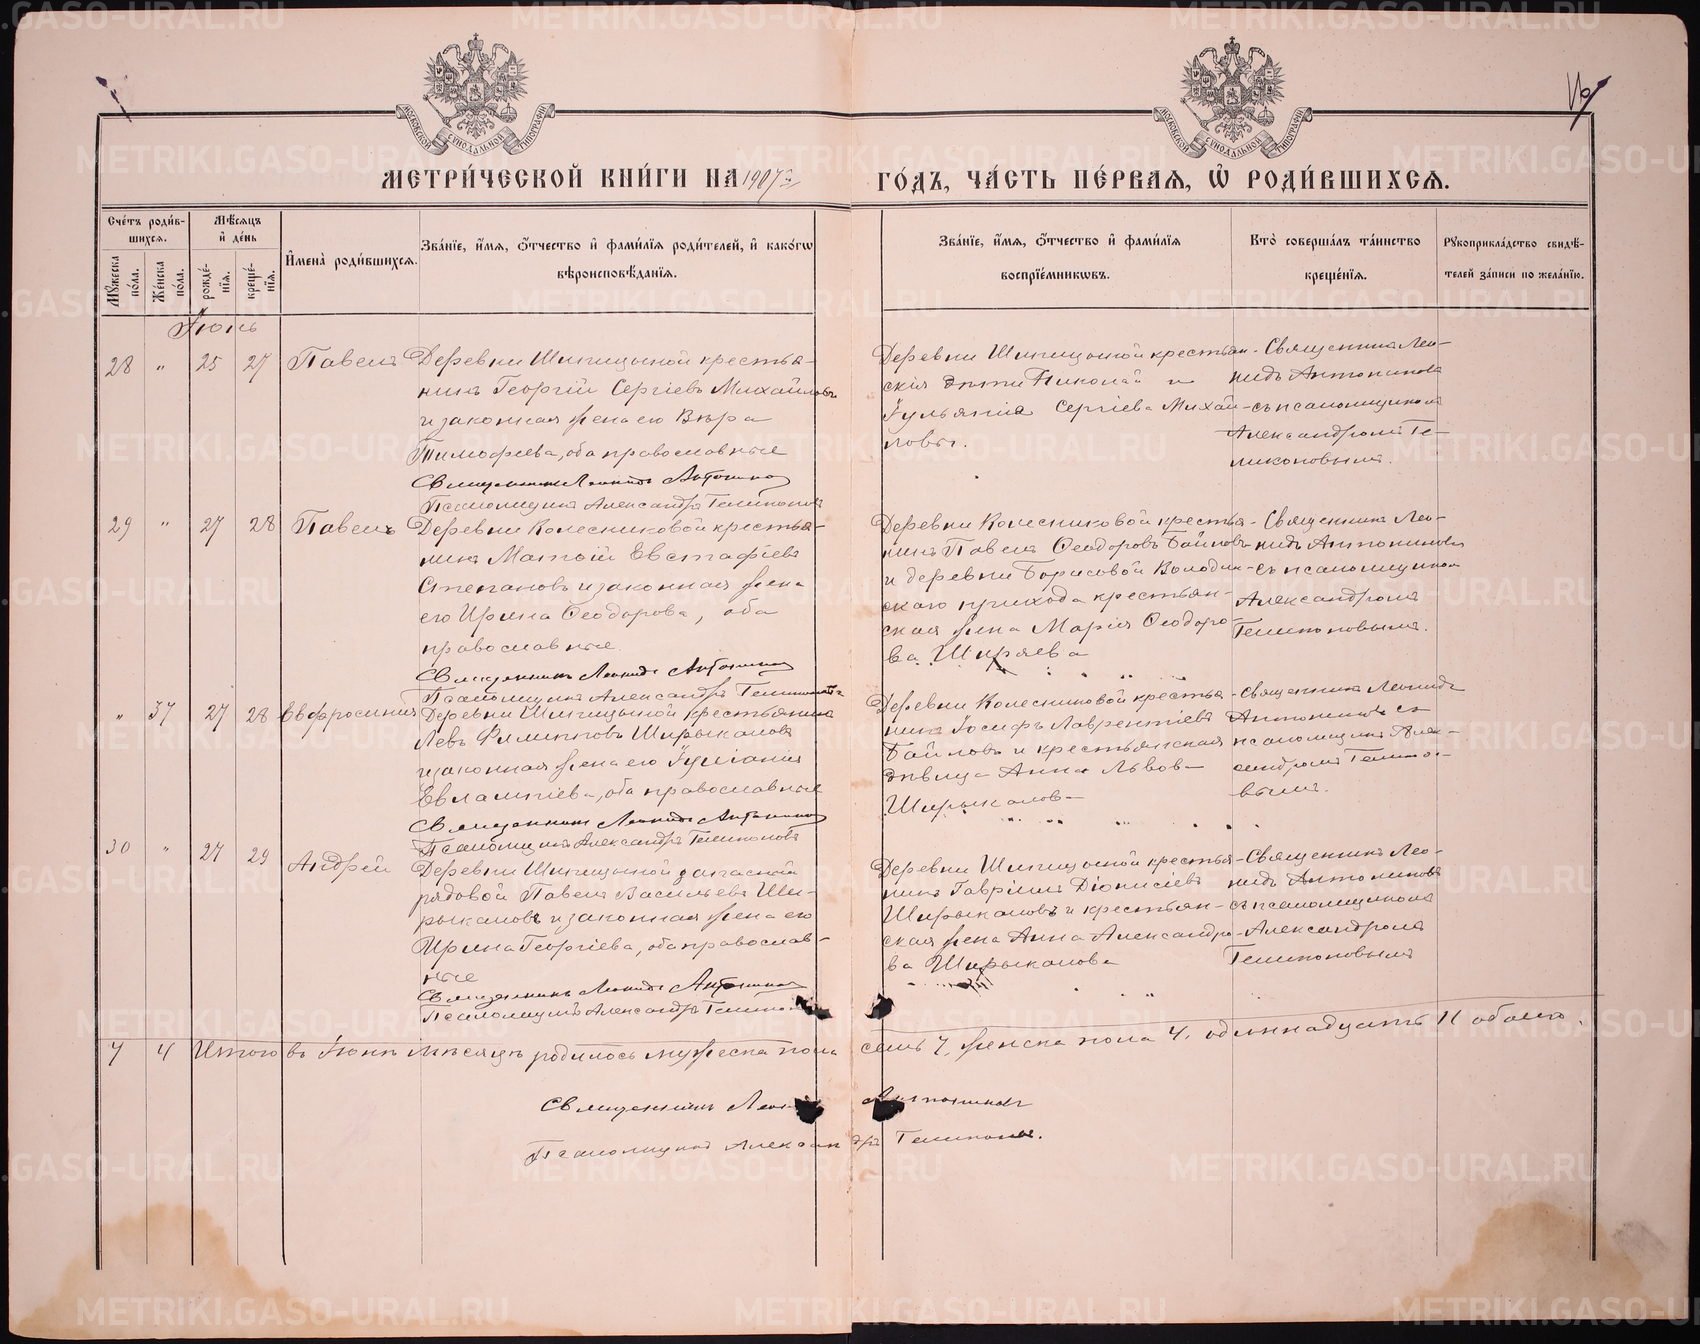 МЕТРИ́ЧЕСКОЙ КНИ́ГИ НА 1907 й ГО́ДЪ, ЧА́СТЬ ПЕ́РВАЯ, Ѡ РОДИ́ВШИХСЯ.
Сче́тъ роди́в-
шихся.
Мꙋ́жеска
по́ла.
Же́нска
по́ла.
Мѣ́сяцъ
и҆ де́нь
рожде́-
нїя.
креще́-
нїя.
И҆мена̀ роди́вшихся.
Зва́нїе, и҆́мя, ѻ҆́тчество и҆ фами́лїя роди́телей, и҆ како́гѡ
вѣроисповѣ́данїя.
Зва́нїе, и҆́мя, ѻ҆́тчество и҆ фами́лїя
воспрїе́мникѡвъ.
Кто̀ соверша́лъ та́инство
креще́нїя.
Рꙋкоприкла́дство свидѣ́-
телей за́писи по жела́нїю.
Іюнь
28 " 25 27 Павелъ
Деревни Шипицыной крестья-
нинъ Георгій Сергіевъ Михайловъ
и законная жена его Вѣра
Тимофеева, оба православные
Священникъ Леонидъ Антонинов
Псаломщикъ Александръ
Деревни Шипицыной крестьян-
скія дѣти Николай и
Іульянія Сергіевы Михай-
ловы.
Священникъ Лео-
нидъ Антониновъ
съ псаломщикомъ
Александромъ
29 " 27 28 Павелъ
Деревни Колесниковой крестья-
нинъ Матѳій Евстафіевъ
Степановъ и законная жена
его Ирина Ѳеодорова, оба
православные.
Священникъ Леонидъ Антонинов
Псаломщикъ Александръ
Деревни Колесниковой крестья-
нинъ Павелъ Ѳеодоровъ Байновъ
и деревни Борисовой Володин-
скаго прихода крестьян-
ская жена Марія Ѳеодоро-
ва Ширяева
Священникъ Лео-
нидъ Антониновъ
съ псаломщикомъ
Александромъ
" 37 27 28 Евфросинія
Деревни Шипицыной крестьянинъ
Левъ Филипповъ Ширыкаловъ
и законная жена его Іуліанія
Евлампіева, оба православные
Священникъ Леонидъ Антонинов
Псаломщикъ Александръ
Деревни Колесниковой крестья-
нинъ Іосифъ Лаврентіевъ
Байновъ и крестьянская
дѣвица Анна Львова
Ширыкалова
Священникъ Леонидъ
Антониновъ съ
псаломщикомъ Алек-
сандромъ
30 " 27 29 Андрей
Деревни Шипицыной запасной
рядовой Павелъ Васильевъ Ши-
рыкаловъ и законная жена его
Ирина Георгіева, оба православ-
ные
Священникъ Леонидъ Антонинов
Псаломщикъ Александръ
Деревни Шипицыной крестья-
нинъ Гавріилъ Діонисіевъ
Ширыкаловъ и крестьян-
ская жена Анна Александро-
ва Ширыкалова
Священникъ Лео-
нидъ Антониновъ
съ псаломщикомъ
Александромъ
7 4 Итого въ Іюнѣ мѣсяцѣ родилось мужеска пола семь 7, женска пола 4, одиннадцать 11 обоего.
Священникъ Леонидъ Антониновъ
Псаломщикъ Александръ
METRIKI.GASO-URAL.RU